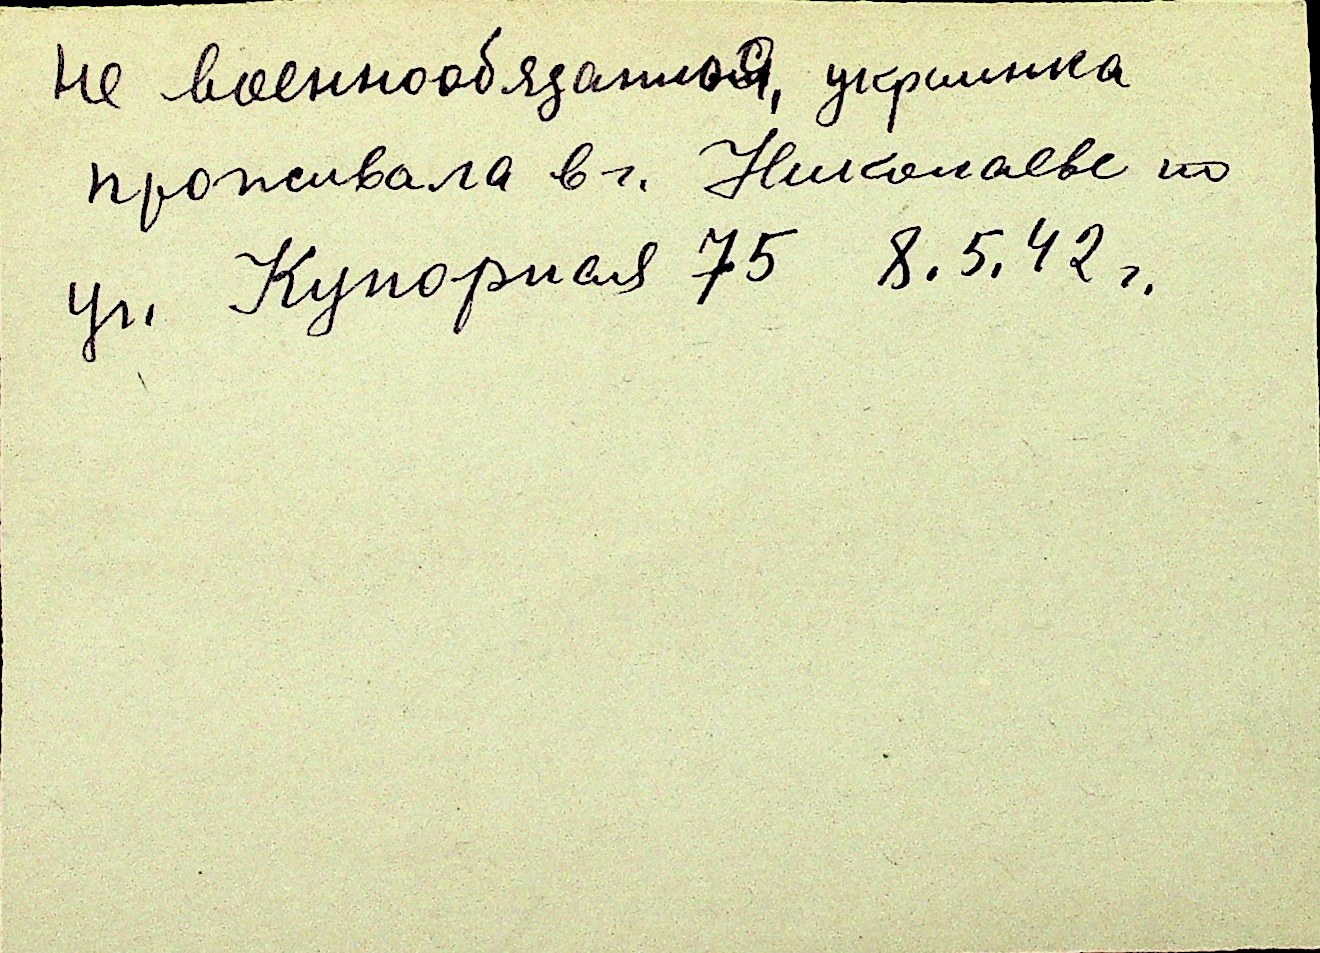 Не военнообязанная, украинка
проживала в г. Николаеве по
ул. Купорная 75 8.5.42 г.